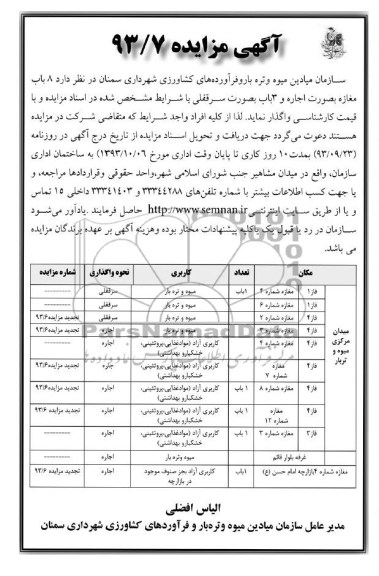 آگهی مزایده ۹۳/۷
سازمان میادین میوه وتره باروفرآورده‌های کشاورزی شهرداری سمنان در نظر دارد ۸ باب
مغازه بصورت اجاره و ۳باب بصورت سرقفلی با شرایط مشخص شده در اسناد مزایده و با
قیمت کارشناسی واگذار نماید. لذا از کلیه افراد واجد شرایط که متقاضی شرکت در مزایده
هستند دعوت می‌گردد جهت دریافت و تحویل اسناد مزایده از تاریخ درج آگهی در روزنامه
(۹۳/۰۹/۲۳) بمدت ۱۰ روز کاری تا پایان وقت اداری مورخ (۱۳۹۳/۱۰/۰۶) به ساختمان اداری
سازمان، واقع در میدان مشاهیر جنب شورای اسلامی شهر،واحد حقوقی وقراردادها مراجعه، و
یا جهت کسب اطلاعات بیشتر با شماره تلفن‌های ۳۳۳۴۴۲۸۸ و ۳۳۳۴۱۴۰۳ داخلی ۱۵ تماس
و یا از طریق سایت اینترنتی http://www.semnan.ir حاصل فرمایند .یادآور می‌شود
سازمان در رد یا قبول یک یا کلیه پیشنهادات مختار بوده وهزینه آگهی بر عهده برندگان مزایده
می باشد.
مکان تعداد کاربری نحوه واگذاری شماره مزایده
میدان مرکزی میوه و تربار
فاز۱ مغازه شماره ۴ ۱باب میوه و تره بار سرقفلی ----------
فاز۱ مغازه شماره ۶ میوه و تره بار سرقفلی ----------
فاز۴ مغازه شماره ۲ میوه و تره بار سرقفلی تجدید مزایده۹۳/۶
فاز۴ مغازه شماره ۳ میوه و تره بار اجاره تجدید مزایده۹۳/۶
فاز۴ مغازه شماره ۴ کاربری آزاد (موادغذایی،پروتئینی، خشکبارو بهداشتی) اجاره ----------
فاز۴ مغازه شماره ۷ کاربری آزاد (موادغذایی،پروتئینی، خشکبارو بهداشتی) اجاره تجدید مزایده ۹۳/۶
فاز۴ مغازه شماره ۸ ۱ باب کاربری آزاد (موادغذایی،پروتئینی، خشکبارو بهداشتی) اجاره تجدید مزایده۹۳/۶
فاز۴ مغازه شماره ۱۲ ۱ باب کاربری آزاد (موادغذایی،پروتئینی، خشکبارو بهداشتی) اجاره تجدید مزایده ۹۳/۶
فاز۲ مغازه شماره ۳ ۱ باب کاربری آزاد (موادغذایی،پروتئینی، خشکبارو بهداشتی) اجاره ----------
غرفه بلوار قائم میوه وتره بار اجاره ----------
مغازه شماره ۴بازارچه امام حسن (ع) ۱باب کاربری آزاد بجز صنوف موجود در بازارچه اجاره تجدید مزایده ۹۳/۶
ParsNamadData
الیاس افضلی
مدیر عامل سازمان میادین میوه وتره‌بار و فرآوردهای کشاورزی شهرداری سمنان